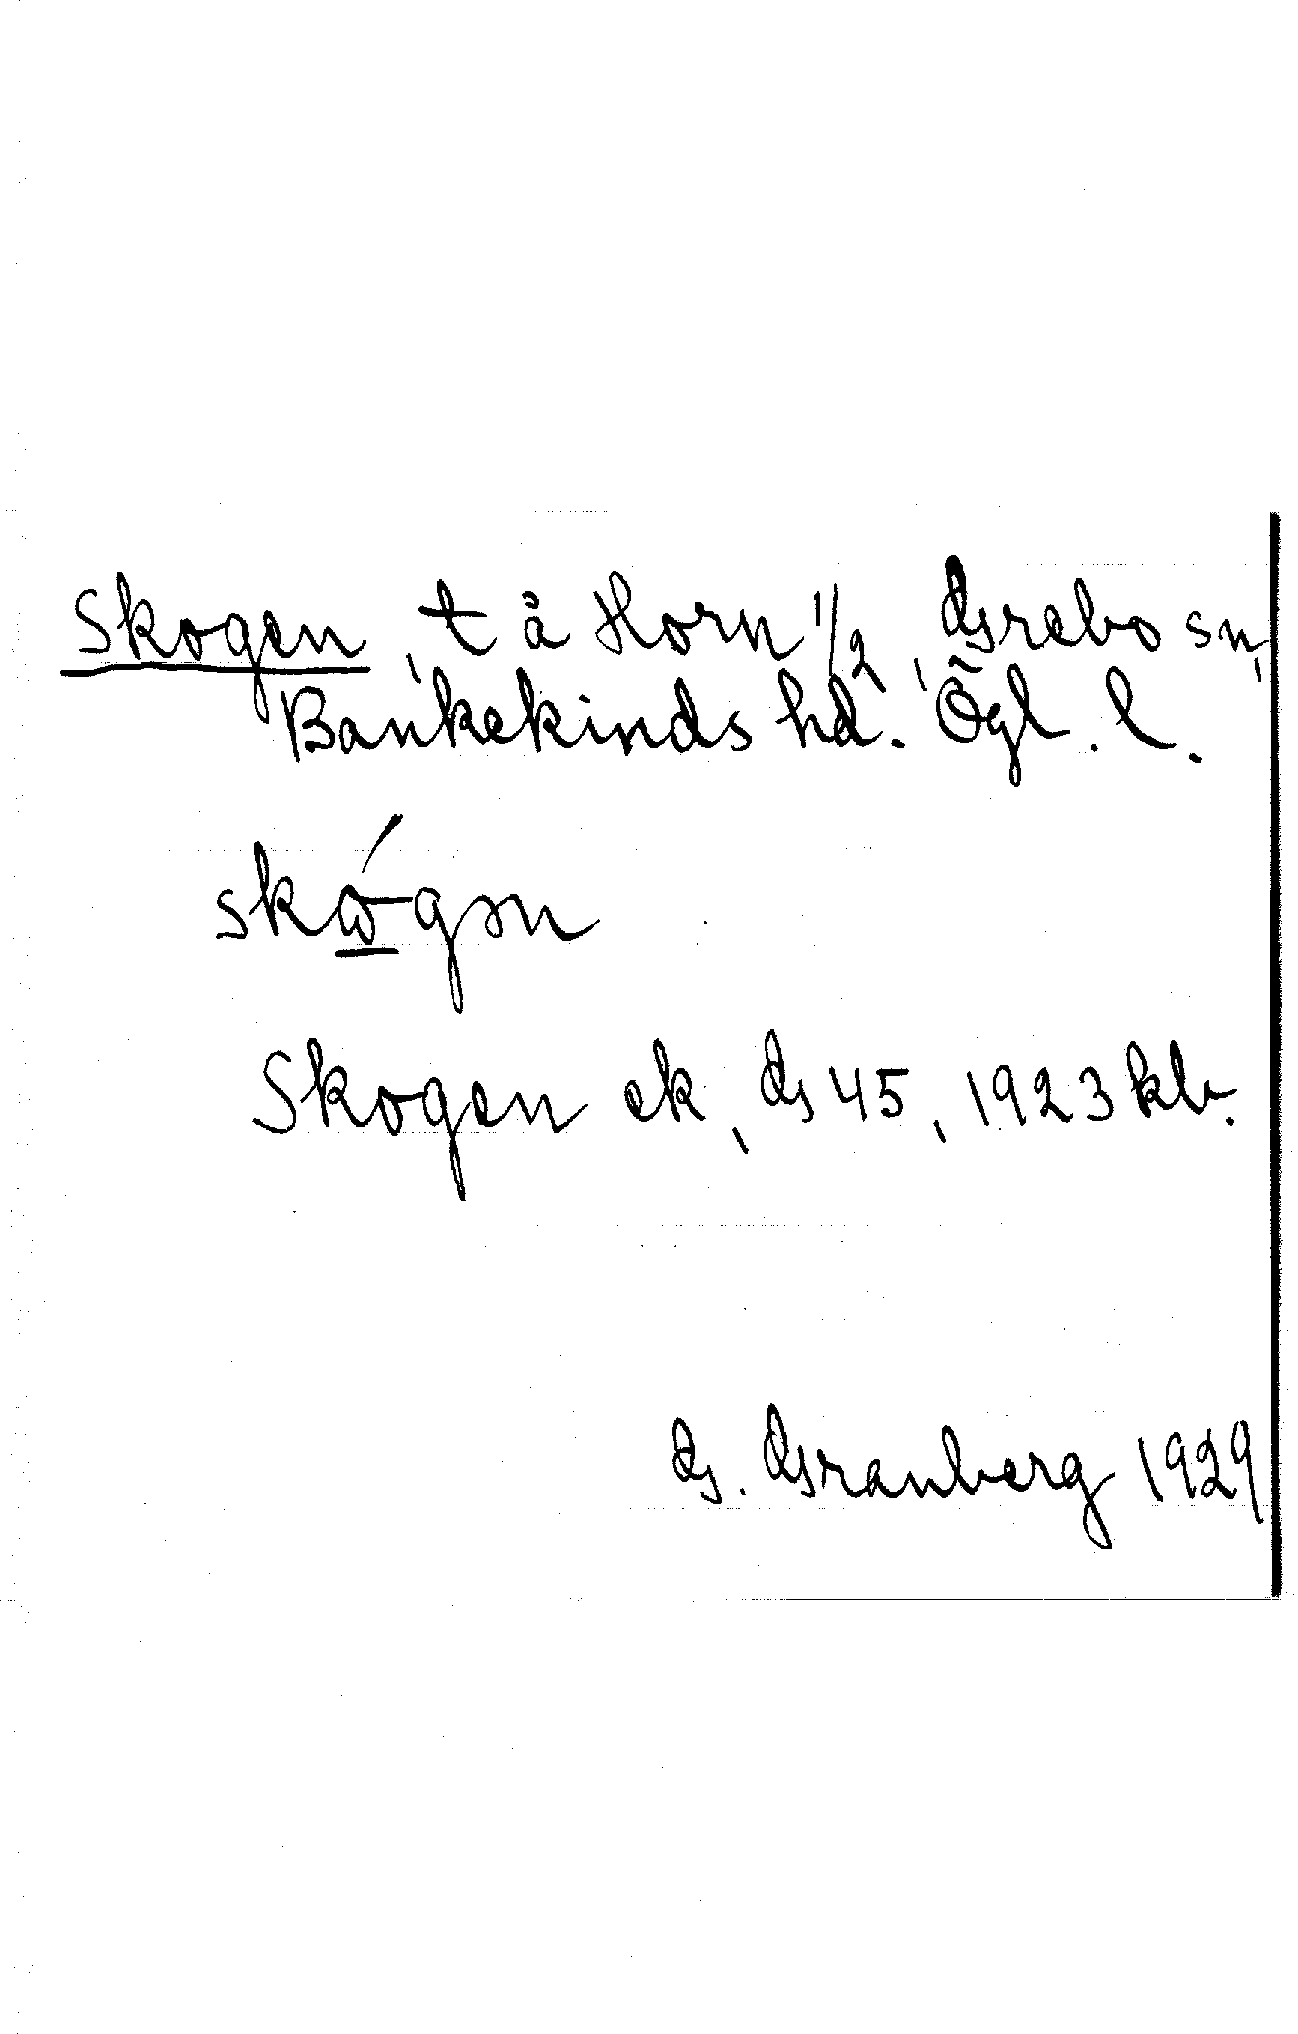 Skogen, t å Horn 1/2, Grebo sn,
Bankekinds hd. Ögl. l.
skógən
Skogen ek, G 45, 1923 kb.
G. Granberg 1929